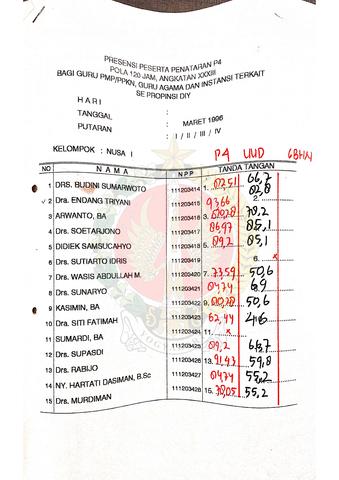 PRESENSI PESERTA PENATARAN P4
POLA 120 JAM, ANGKATAN XXXIII
BAGI GURU PMP/PPKN, GURU AGAMA DAN INSTANSI TERKAIT
SE PROPINSI DIY
HARI :
TANGGAL : MARET 1996
PUTARAN : I / II / III / IV
KELOMPOK : NUSA I P4 UUD GBHN
NO NAMA NPP TANDA TANGAN
1 DRS. BUDINI SUMARWOTO 111203414 1. 66,7
2 Dra. ENDANG TRIYANI 111203415 2. 9366
3 ARWANTO, BA 111203416 3. 70,2
4 Drs. SOETARJONO 111203417 85,1
5 DIDIEK SAMSUCAHYO 111203418 5. 89,2 85,1
6 Drs. SUTIARTO IDRIS 111203419 6. x
7 Drs. WASIS ABDULLAH M. 111203420 7. 7359 50,6
8 Drs. SUNARYO 111203421
9 KASIMIN, BA 111203422 9. 50,6
10 Drs. SITI FATIMAH 111203423 62,44
11 SUMARDI, BA 111203424 11. x
12 Drs. SUPASDI 111203425
13 Drs. RABIJO 111203426 13. 91,43 59,8
14 NY. HARTATI DASIMAN, B.Sc 111203427 55,2
15 Drs. MURDIMAN 111203428 15. 55,2